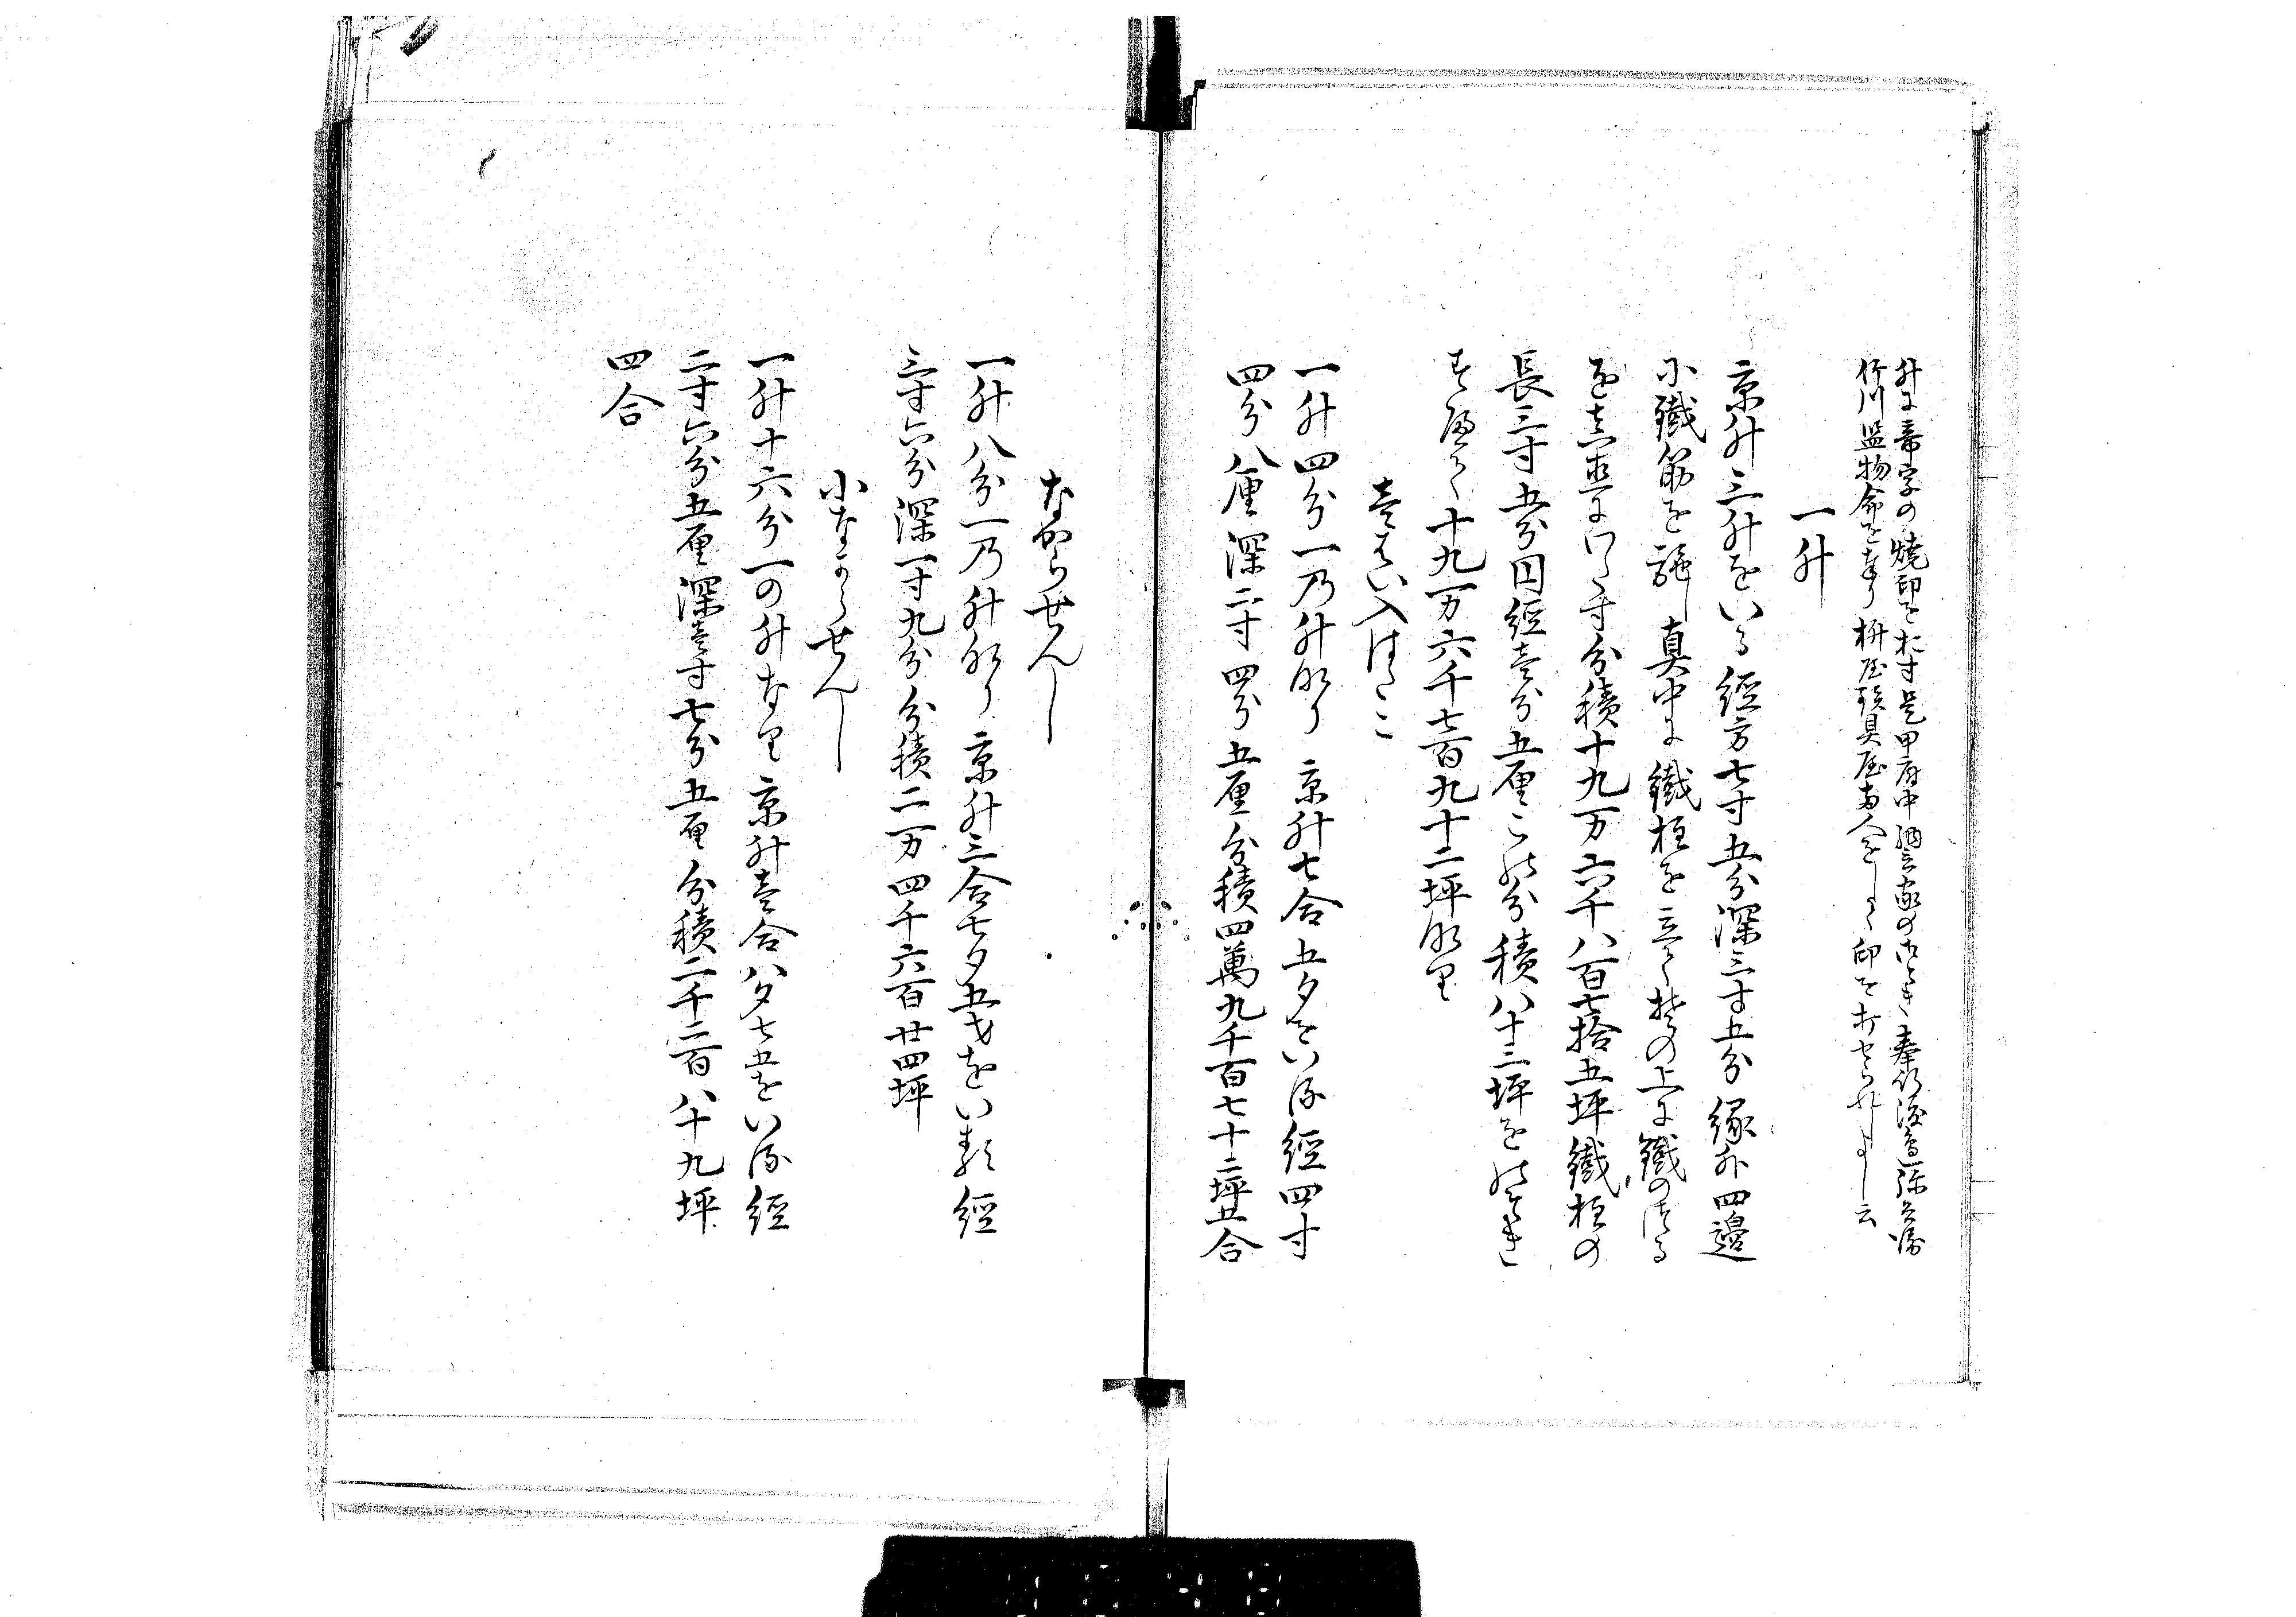 升に帝字の焼印をおす是甲府中納言家の御とき奉行渡邉弥兵衛
竹川監物命を奉り枡屋張具屋両人をして印をおさせられしよし云
一升
京升三升をいる經方七寸五分深三寸五分縁外四邉
小鐵筋を施し真中に鐵柱を立て其の上に鐵のはる
を真直にわたす寸分積十九万六千八百七拾五坪鐵柱の
長三寸五分囘經壹分五厘この分積八十三坪をのそき
すへて十九万六千七百九十二坪なり
はい入はこ
一升四分一乃升なり京升七合五夕をいる經四寸
四分八厘深二寸四分五厘分積四萬九千百七十二坪五合
なからせんし
一升八分一乃升なり京升三合七夕五才をいる經
三寸六分深一寸九分分積二万四千六百廿四坪
小なからせんし
一升十六分一の升なり京升壹合八夕七五をいる經
二寸六分五厘深壹寸七分五厘分積二千二百八十九坪
四合